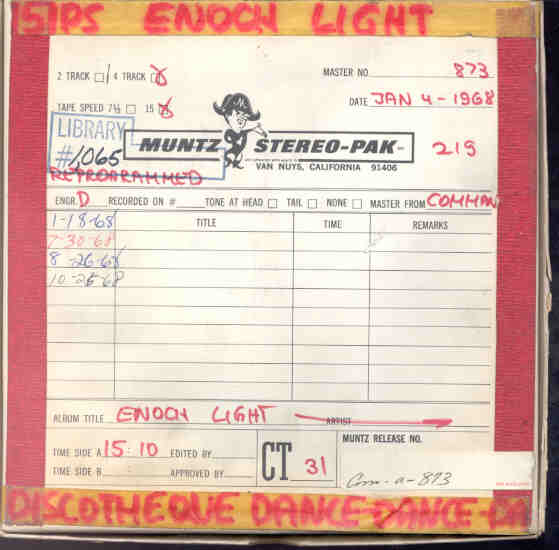 15IPS ENOCH LIGHT
2 TRACK 4 TRACK
MASTER NO. 873
TAPE SPEED 7½ 15
DATE JAN 4-1968
LIBRARY
#1065
MUNTZ STEREO-PAK
219
VAN NUYS, CALIFORNIA 91406
REPROGRAMMED
ENGR. D RECORDED ON # TONE AT HEAD TAIL NONE MASTER FROM COMMAN
TITLE TIME REMARKS
1-18-68
7-30-68
8-26-68
10-25-68
ALBUM TITLE ENOCH LIGHT ARTIST
TIME SIDE A 15:10 EDITED BY
TIME SIDE B APPROVED BY
CT 31
MUNTZ RELEASE NO.
Com-a-873
DISCOTHEQUE DANCE-DANCE-DA